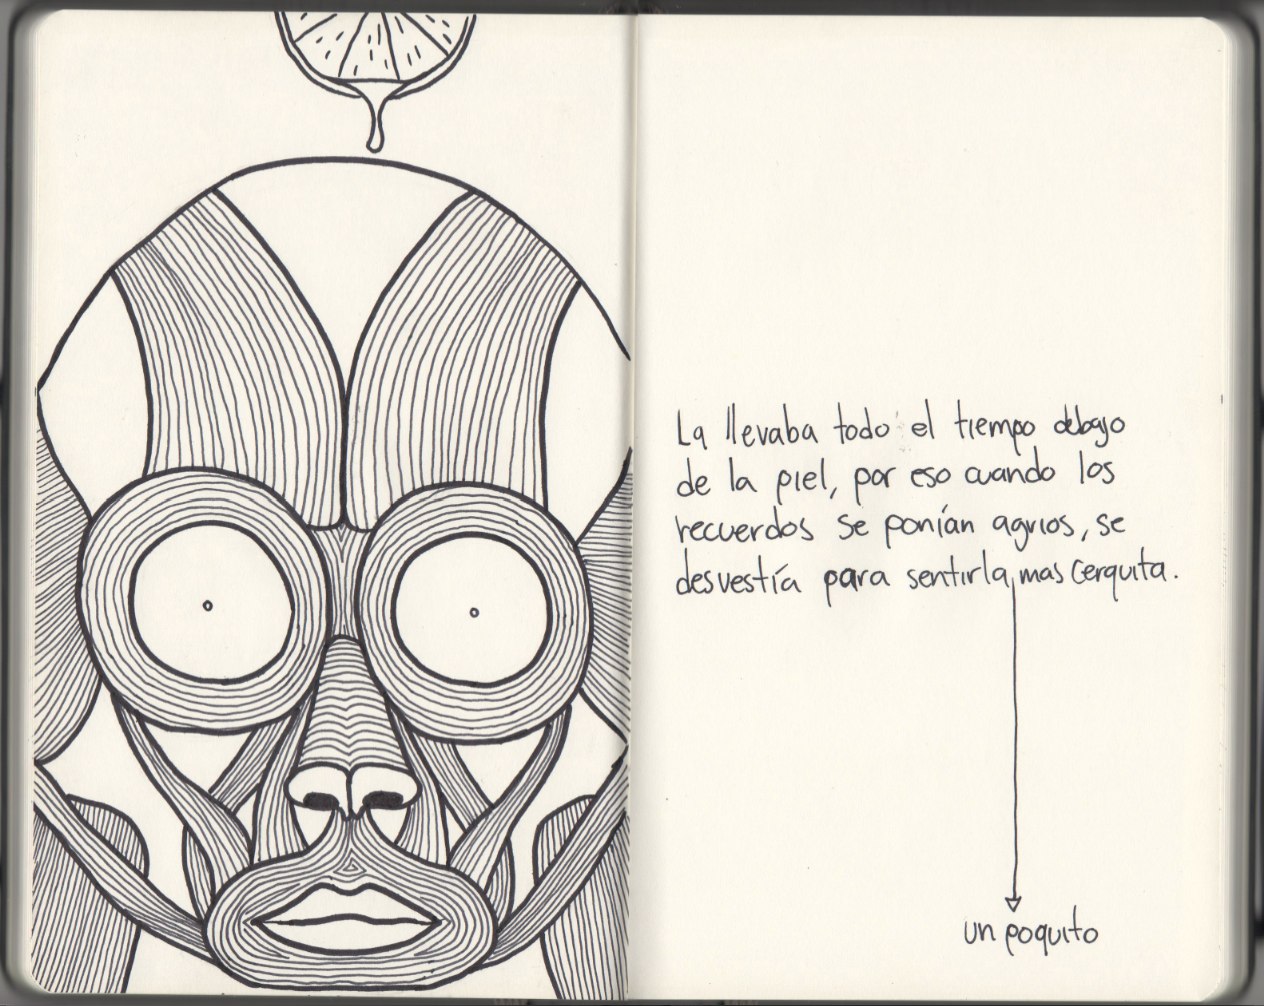 La llevaba todo el tiempo debajo
de la piel, por eso cuando los
recuerdos se ponían agrios, se
desvestía para sentirla mas cerquita.
un poquito